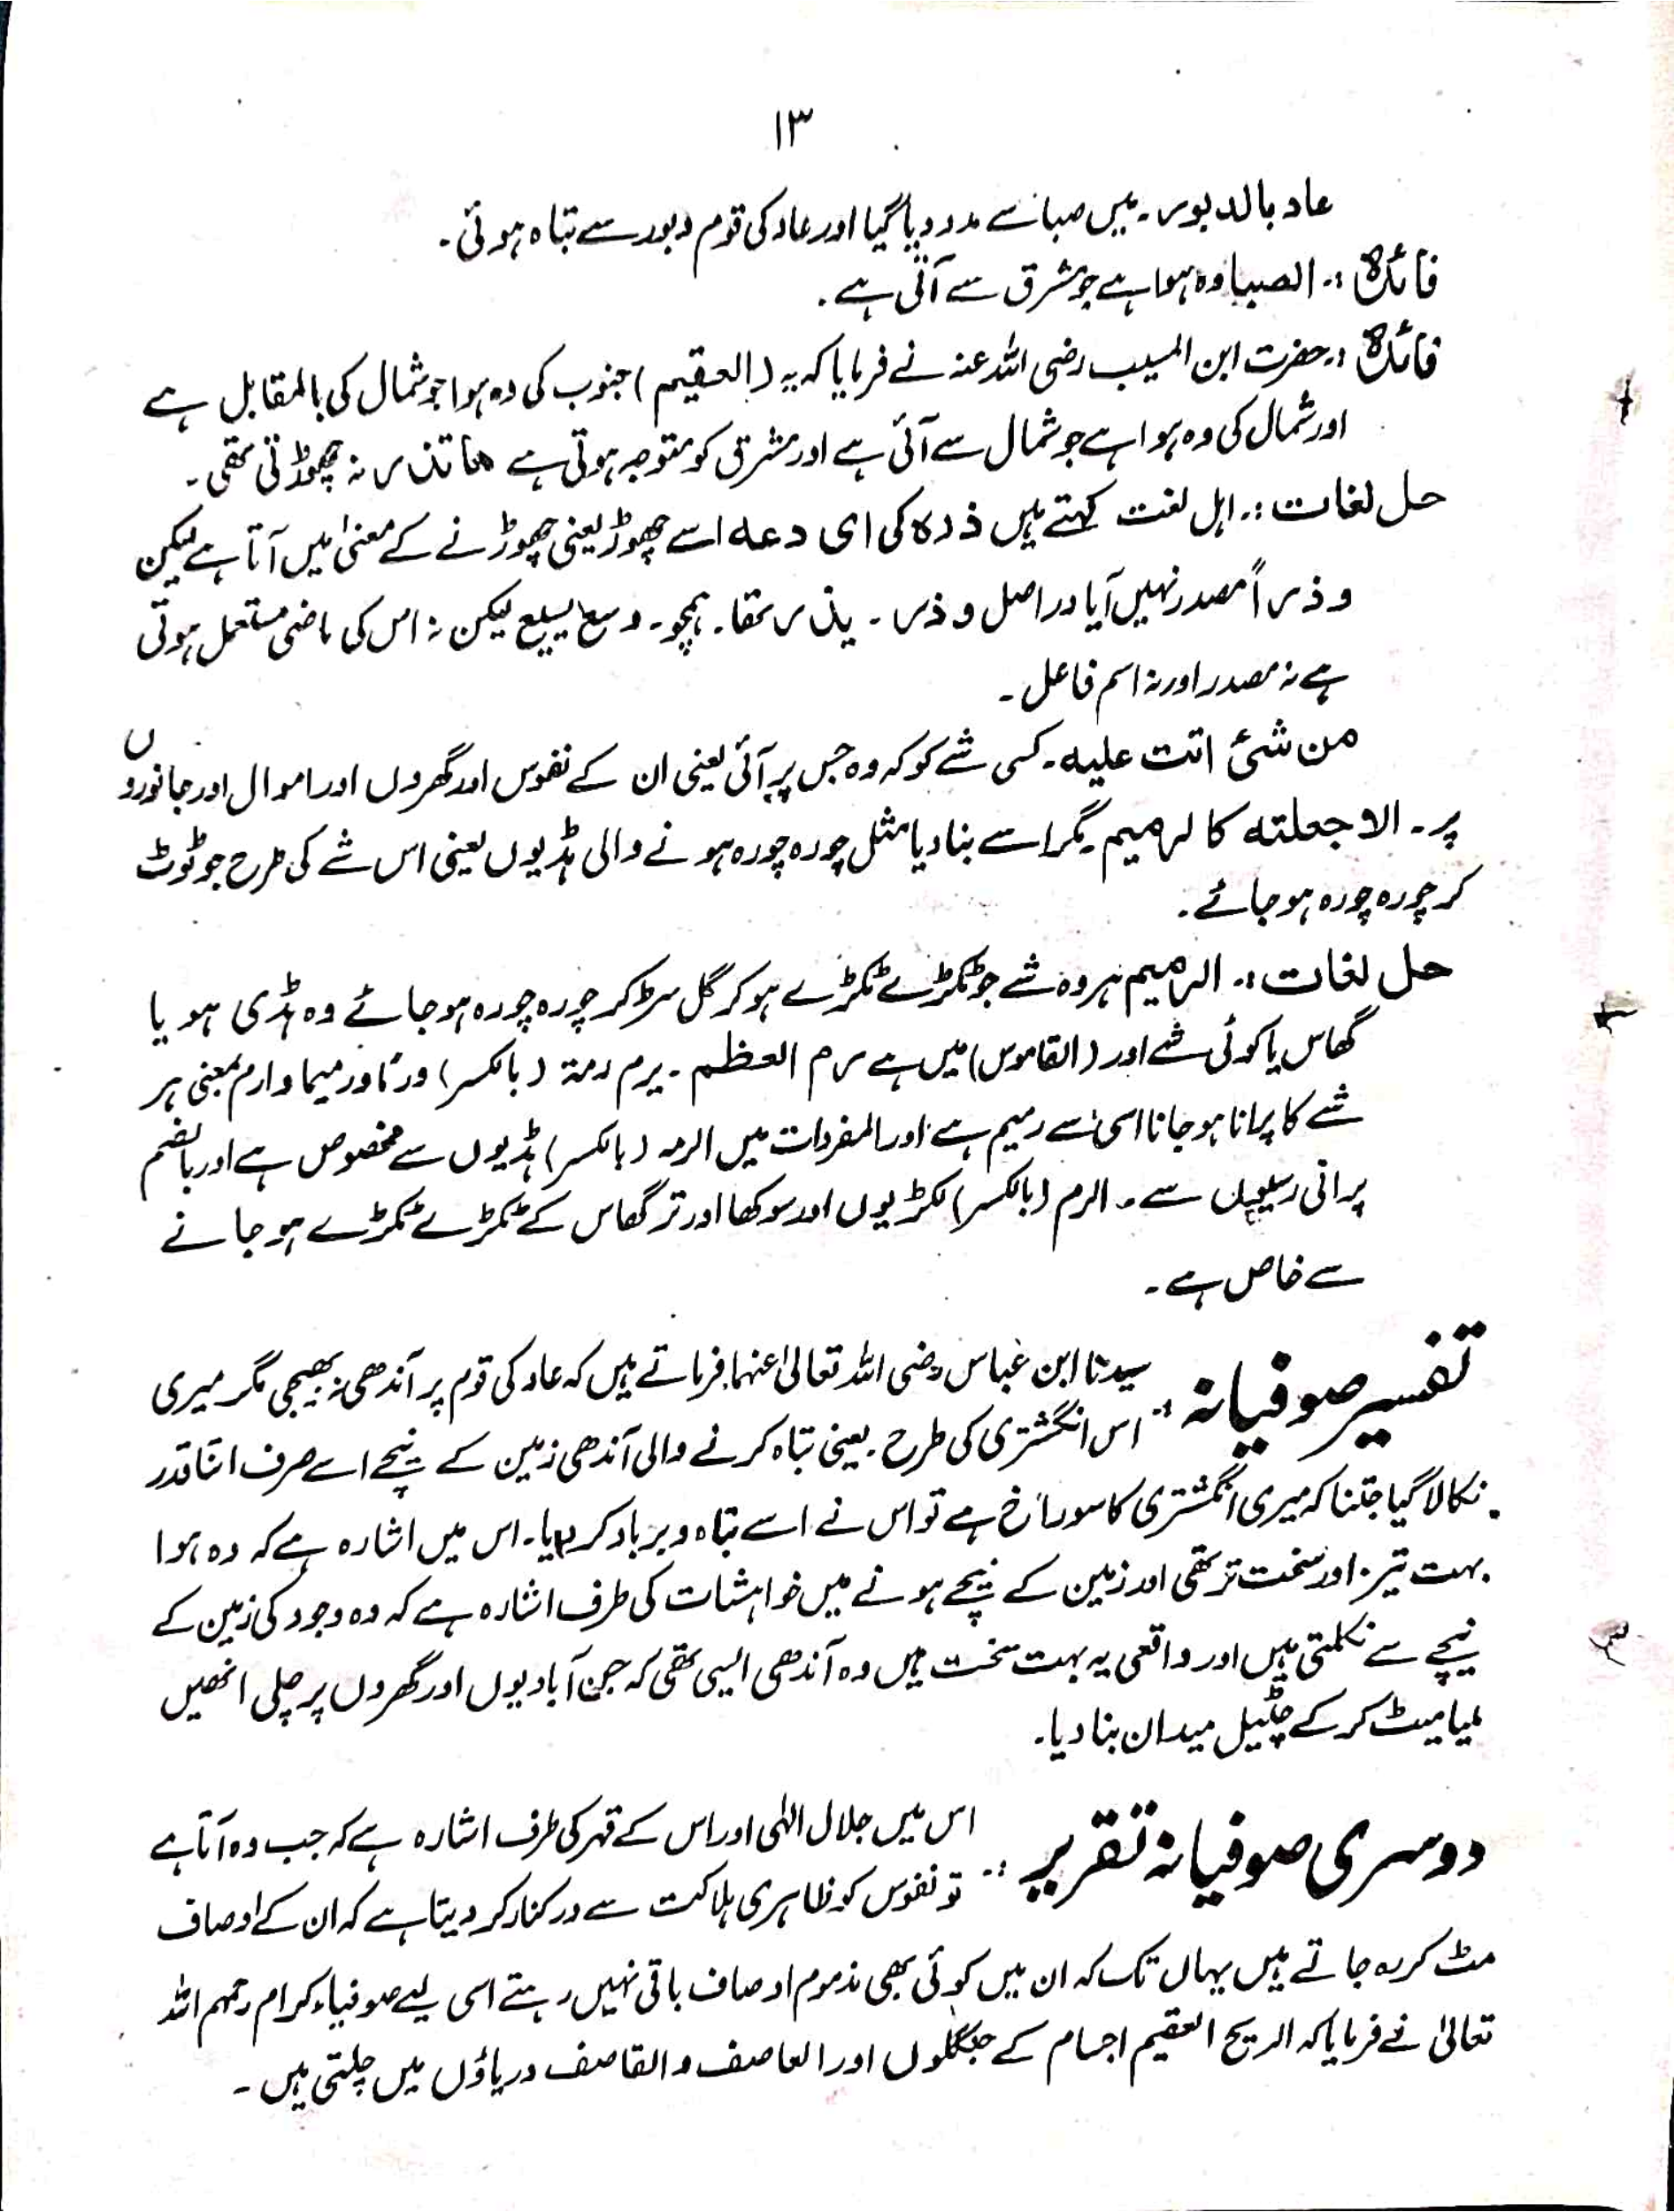 ۱۳
عاد بالدبور۔ میں صبا سے مدد دیا گیا اور عاد کی قوم دبور سے تباہ ہوئی۔
فائدہ :۔ الصبا وہ ہوا ہے جو مشرق سے آتی ہے۔
فائدہ :۔ حضرت ابن المسیب رضی اللہ عنہ نے فرمایا کہ یہ (العقیم) جنوب کی وہ ہوا جو شمال کی بالمقابل ہے
اور شمال کی وہ ہوا ہے جو شمال سے آتی ہے اور مشرق کو متوجہ ہوتی ہے ما تذر نہ چھوڑتی تھی۔
حل لغات :۔ اہل لغت کہتے ہیں ذرہ کی ای دعہ اسے چھوڑ یعنی چھوڑنے کے معنیٰ میں آتا ہے لیکن
وذراً مصدر نہیں آیا دراصل وذر۔ یذر تھا۔ ہمچو۔ وسع یسیع لیکن نہ اس کی ماضی مستعمل ہوتی
ہے نہ مصدر اور نہ اسم فاعل۔
من شئ اتت علیہ۔ کسی شے کو کہ وہ جس پر آئی یعنی ان کے نفوس اور گھروں اور اموال اور جانوروں
پر۔ الا جعلتہ کالرمیم۔ مگر اسے بنا دیا مثل چورہ چورہ ہونے والی ہڈیوں یعنی اس شے کی طرح جو ٹوٹ
کر چورہ چورہ ہو جائے۔
حل لغات :۔ الرمیم ہر وہ شے جو ٹکڑے ٹکڑے ہو کر گل سڑ کر چورہ چورہ ہو جائے وہ ہڈی ہو یا
گھاس یا کوئی شے اور (القاموس) میں ہے رم العظم۔ یرم رمۃ (بالکسر) ورمًا ورمیما وارم بمعنی ہر
شے کا پرانا ہو جانا اسی سے رمیم ہے اور المفردات میں الرمہ (بالکسر) ہڈیوں سے مخصوص ہے اور بالضم
پرانی رسیوں سے۔ الرم (بالکسر) لکڑیوں اور سوکھا اور تر گھاس کے ٹکڑے ٹکڑے ہو جانے
سے خاص ہے۔
تفسیر صوفیانہ :۔ سیدنا ابن عباس رضی اللہ تعالیٰ عنہما فرماتے ہیں کہ عاد کی قوم پر آندھی نہ بھیجی مگر میری
اس انگشتری کی طرح۔ یعنی تباہ کرنے والی آندھی زمین کے نیچے اسے صرف اتنا قدر
نکالا گیا جتنا کہ میری انگشتری کا سوراخ ہے تو اس نے اسے تباہ و برباد کر دیا۔ اس میں اشارہ ہے کہ وہ ہوا
بہت تیز اور سخت تر تھی اور زمین کے نیچے ہونے میں خواہشات کی طرف اشارہ ہے کہ وہ وجود کی زمین کے
نیچے سے نکلتی ہیں اور واقعی یہ بہت سخت ہیں وہ آندھی ایسی تھی کہ جن آبادیوں اور گھروں پر چلی انھیں
ملیامیٹ کر کے چٹیل میدان بنا دیا۔
دوسری صوفیانہ تقریر :۔ اس میں جلال الٰہی اور اس کے قہر کی طرف اشارہ ہے کہ جب وہ آتا ہے
تو نفوس کو ظاہری ہلاکت سے درکنار کر دیتا ہے کہ ان کے اوصاف
مٹ کر رہ جاتے ہیں یہاں تک کہ ان میں کوئی بھی مذموم اوصاف باقی نہیں رہتے اسی لیے صوفیاء کرام رحمہم اللہ
تعالیٰ نے فرمایا کہ الریح العقیم اجسام کے جنگلوں اور العاصف والقاصف دریاؤں میں چلتی ہیں۔